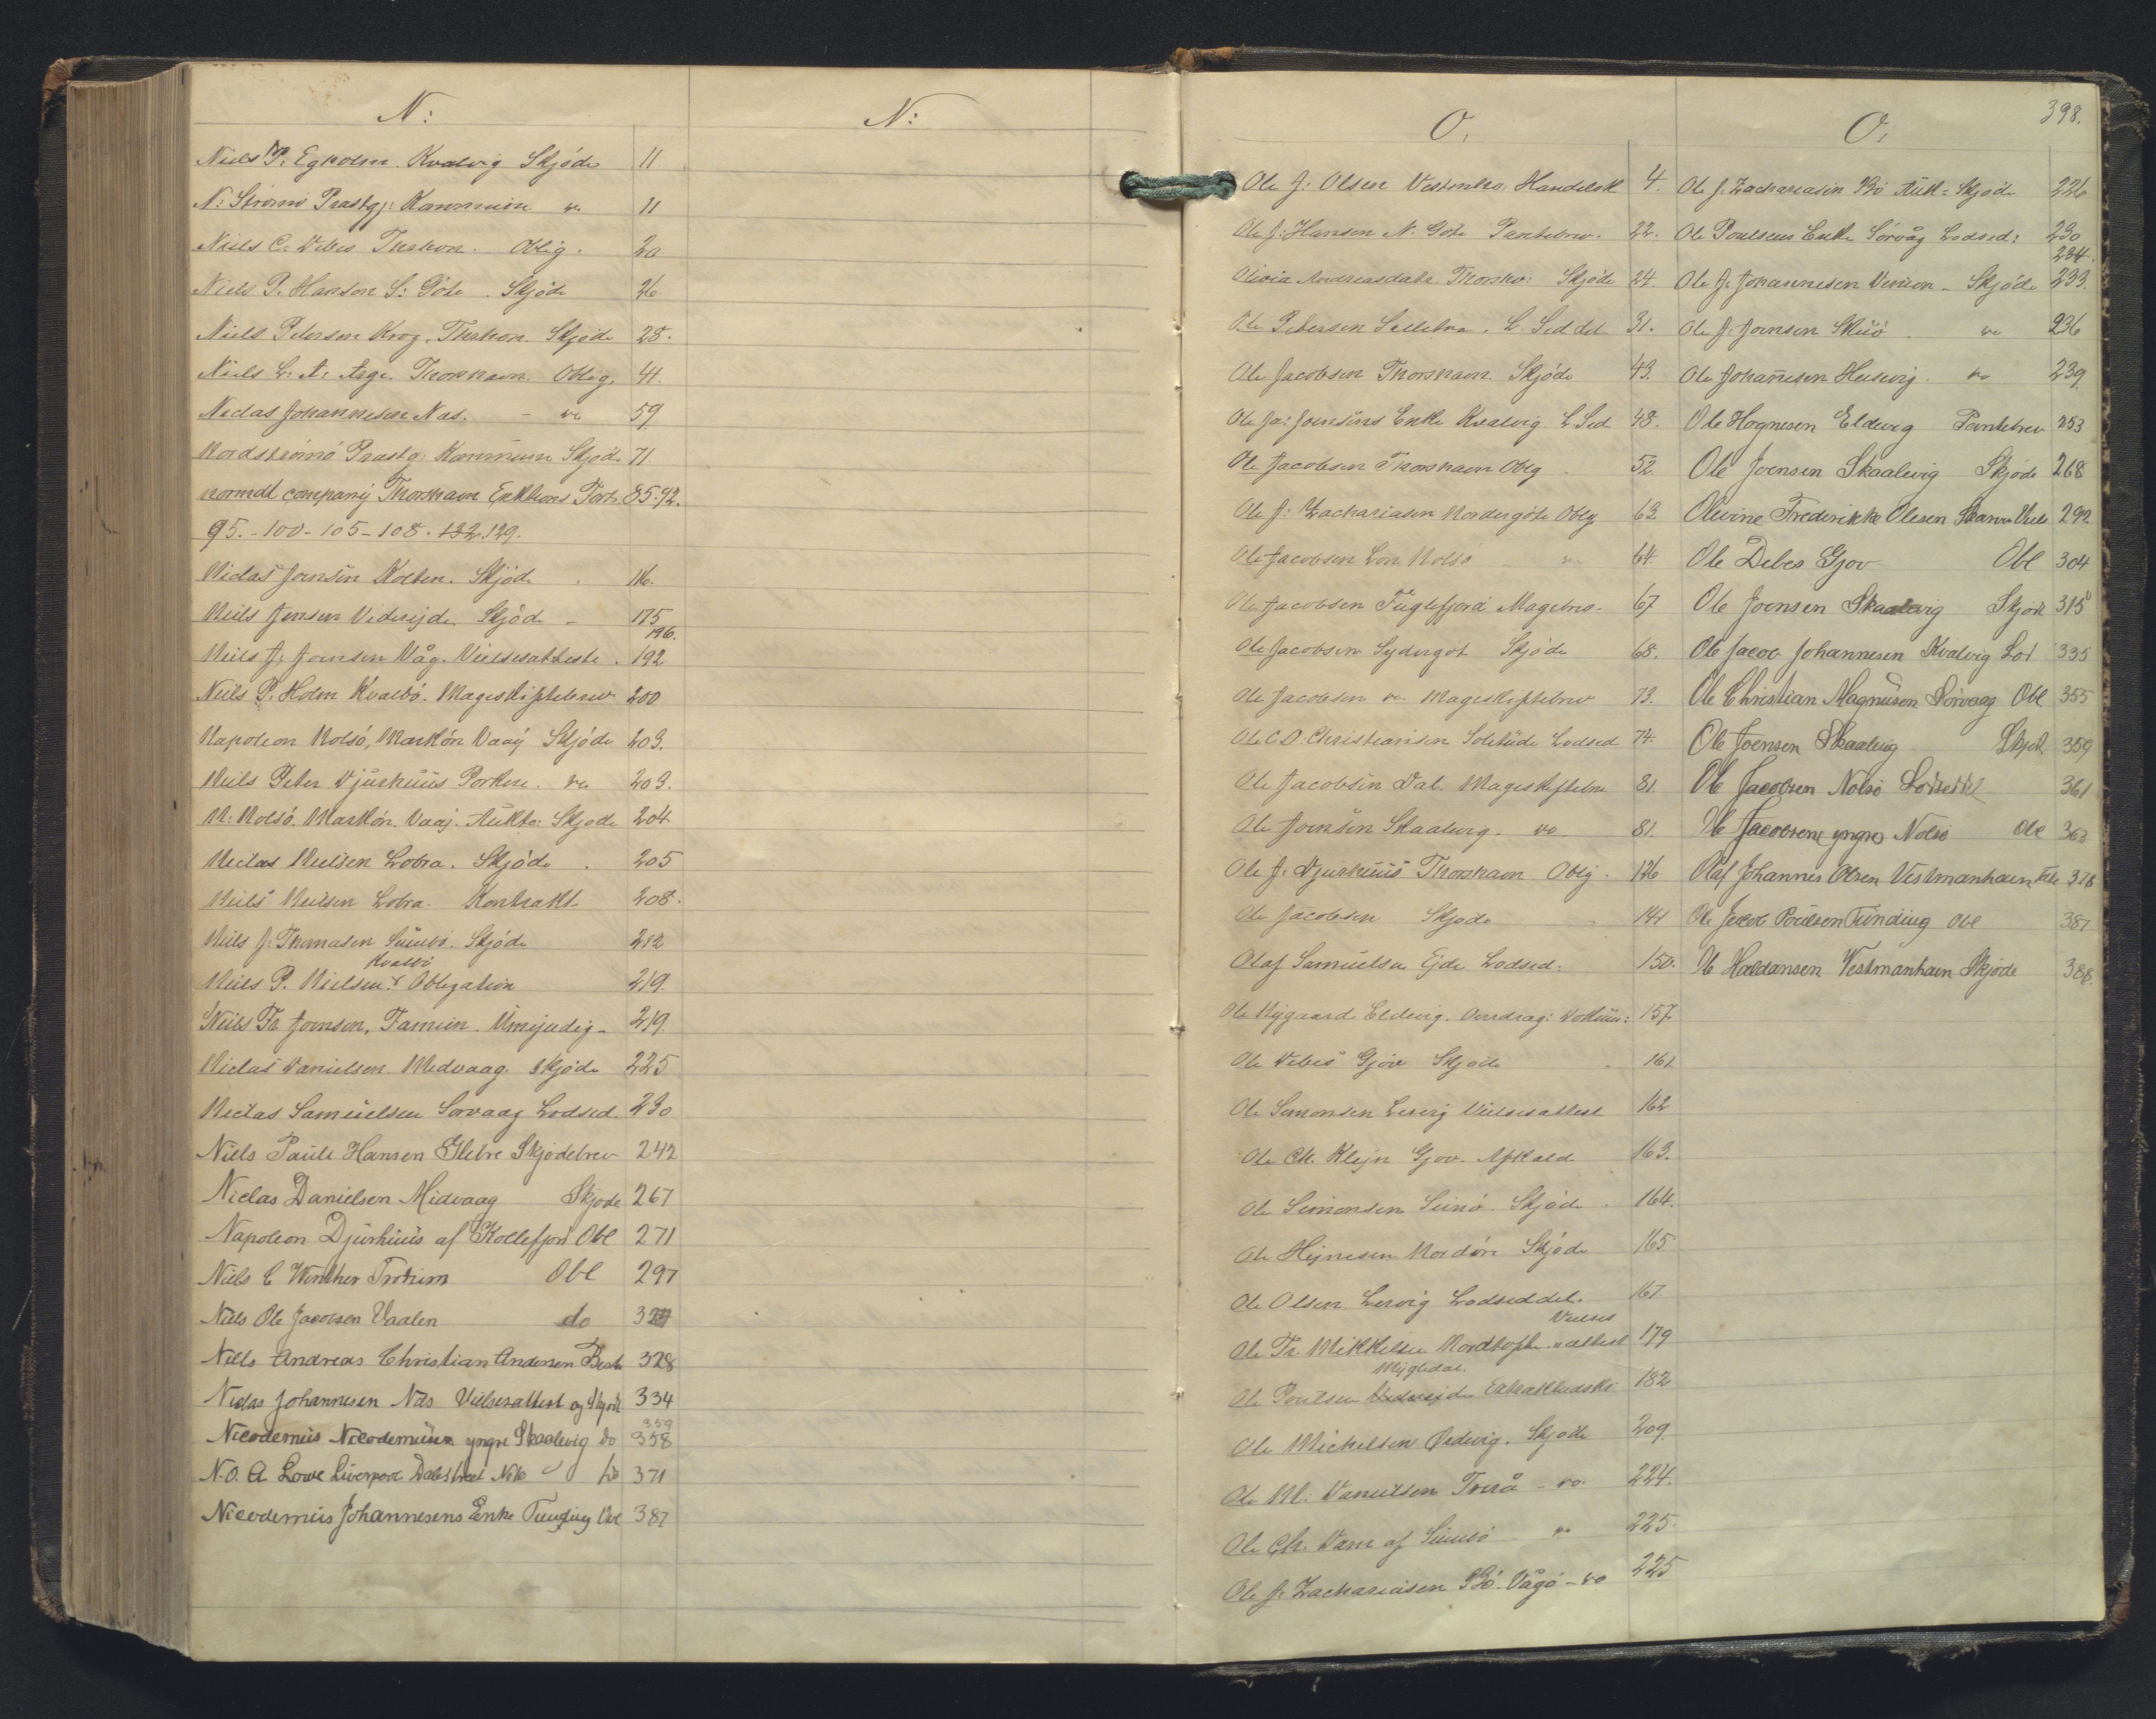 N:
Niels P. Egholm. Kvalvig Skjöde 11
N: Strömö Præstgj: Kommune do 11
Niels C. Debes Thshavn. Oblig. 20
Niels P. Hanson S: Göte. Skjöde 26
Niels Petersen Krog, Thshavn. Skjöde 28.
Niels L: A: Arge. Thorshavn. Oblig. 41.
Niclas Johannesen Nas. - do 59
Nordströmö Præstg: Kommune Skjöde 71
normdl company Thorshavn Auktions Forr. 85-92.
95.-100-105-108. 132.129.
Niclas Joensen Kolten. Skjöde 116.
Niels Jensen Viderejde Skjöde - 175
196.
Niels J. Joensen Våg. Vielsesatteste. 192
Niels P. Holm Kvalbö. Mageskiftebrev 200
Napoleon Nolsö, Markön Vaag Skjöde 203.
Niels Peter Djurhuus Porkere. do 203.
N: Nolsö. Markön. Vaag. Aukts: Skjöde 204
Niclas Nielsen Lobra. Skjöde. 205
Niels Nielsen Lobra. Kontrakt 208.
Niels J: Thomasen Sumbö. Skjöde 212
Kvalbö
Niels P. Nielsen Obligation 219.
Niels Fr. Joensen, Famien. Umyndig- 219.
Niclas Danielsen Midvaag. Skjöde 225
Niclas Samuelsen Sorvaag Lodsed. 230
Niels Paule Hansen Glibre Skjödebrev 242
Niclas Danielsen Midvaag Skjøde 267
Napoleon Djurhuus af Kollefjord Obl 271
Niels C Winther Trohum Obl 297
Niels Ole Jacobsen Vaalen do
Niels Andreas Christian Andersen Besk 328
Niclas Johannesen Nas Vielsesattest og Skjøde 334
359
Nicodemus Nicodemusen yngre Skaalevig do 358
N.O. A Lowe Liverpool Dalestreet No 10 do 371
Nicodemus Johannesens Enke Funding Obl 387
N:
O.
Ole J: Olsen Vestmhv. Handelsk 4.
Ole J: Hansen N. Göte Pantebrev. 22.
Olivia Andreasdatr. Thorshv: Skjöde 24.
Ole Petersen Sellebra. L. Seddel 31.
Ole Jacobsen Thorshavn. Skjöde 43.
Ole Ja: Joensens Enke Kvalvig L. Sed 48.
Ole Jacobsen Thorshavn Oblg. 52.
Ole J: Zachariasen Nordergöte Oblg 63.
Ole Jacobsen Lon Nolsö do 64.
Ole Jacobsen Fuglefjord Magebrev. 67
Ole Jacobsen Sydergöt Skjöde 68.
Ole Jacobsen do. Mageskiftebrev 73.
Ole C. O. Christiansen Solitüde Lodsed 74.
Ole Jacobsen Dal. Mageskiftebre 81.
Ole Joensen Skaalevig. do 81.
Ole J. Djurhuus Thorshavn Oblig. 126
Ole Jacobsen Skjöde 141
Olaf Samuelsen Ejde Lodsed: 150.
Ole Nygaard Eldevig. Overdrag: Dokum: 157.
Ole Debes Gjov Skjöde 161
Ole Semonsen Lervig Vielsesattest 162
Ole Ch. Klejn Gjov. Afkald 163.
Ole Simonsen Svinö. Skjöde. 164.
Ole Hejnesen Nordöre Skjöde 165
Ole Olsen. Lervig Lodseddel. 167
Vielses
Ole Fr. Mikkelsen Nordtofte. attest 179
Mygledal.
Ole Poulsen Viderejde Extraktudskr: 182
Ole Mickelsen Ordevig. Skjöde 209.
Ole M: Danielsen Trerå - do. 224.
Ole Ch. Dam af Sumbö do 225.
Ole J. Zachariasen Bö. Vågö - do 225
398.
O.
Ole J. Zachariasen Bö Auk = Skjöde 226
Ole Poulsens Enke Sörvåg Lodsed: 230
234.
Ole J. Johannesen Venion - Skjöde 233.
Ole J. Joensen Skuö. do 236
Ole Johanesen Husevig. do 239.
Ole Hognesen Eldevig Pantebrev 253
Ole Joensen Skaalevig Skjøde 268
Olevine Frederikke Olesen Skarve Viels 292
Ole Debes Gjov Obl 304
Ole Joensen Skaalevig Skjøde 315
Ole Jacob Johannesen Kvalvig Lod 335
Ole Christian Magnusen Sörvaag Obl 355
Ole Joensen Skaalevig Skjød 359
Ole Jacobsen Nolsø Lodseddel 361
Ole Jacobsen yngre Nolsö Obl 363
Olaf Johannes Olsen Vestmanhavn 378
Ole Jacob Poulsen Funding Obl 387
Ole Haldansen Vestmanhavn Skjøde 388.